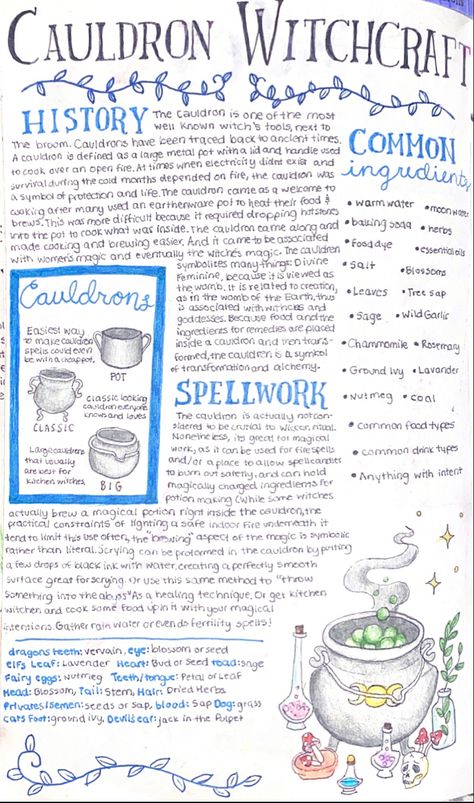 CAULDRON WITCHCRAFT
HISTORY
The Cauldron is one of the most
well known witch's tools, next to
the broom. Cauldrons have been traced back to ancient times.
A cauldron is defined as a large metal pot with a lid and handle used
to cook over an open fire. At times when electricity didnt exist and
survival during the cold months depended on fire, the cauldron was
a symbol of protection and life. The cauldron came as a welcome to
cooking after many used an earthenware pot to heat their food &
brews. This was more difficult because it required dropping hot stones
into the pot to cook what was inside. The cauldron came along and
made cooking and brewing easier. And it came to be associated
with women's magic and eventually the witches magic. The cauldron
symbolises many things: Divine
Feminine, because it is viewed as
the womb. It is related to creation,
as in the womb of the Earth, thus
is associated with witches and
goddesses. Because food and the
ingredients for remedies are placed
inside a cauldron and then trans-
formed, the cauldren is a symbol
of transformation and alchemy.
Cauldrons
Easiest way
to make cauldron
spells could even
be with a cheap pot.
POT
CLASSIC
classic looking
cauldron everyone
knows and loves
Large cauldrons
that usually
are best for
kitchen witches
BIG
SPELLWORK
The cauldron is actually not con-
sidered to be crucial to Wiccan ritual.
Nonetheless, its great for magical
work, as it can be used for fire spells
and/or a place to allow spell candles
to burn out safetly, and can hold
magically charged ingredients for
potion making (while some witches
actually brew a magical potion right inside the cauldron, the
practical constraints of lighting a safe indoor fire underneath it
tend to limit this use often, the "brewing" aspect of the magic is symbolic
rather than literal. Scrying can be preformed in the cauldron by putting
a few drops of black ink with water, creating a perfectly smooth
surface great for scrying. Or use this same method to "throw
something into the abyss" As a healing technique. Or get kitchen
witchen and cook some food up in it with your magical
intentions. Gather rain water or even do fertility spells!
COMMON
ingredients
• warm water • moon water
• baking soda • herbs
• food dye • essential oils
• Salt • Blossoms
• Leaves • Tree sap
• Sage • Wild Garlic
• Chammomile • Rosemary
• Ground Ivy • Lavander
• Nutmeg • coal
• common food types
• common drink types
• Anything with intent
dragons teeth: vervain, eye: blossom or seed
Elfs Leaf: Lavender Heart: Bud or Seed toad: sage
Fairy eggs: Nutmeg Teeth/tongue: Petal or Leaf
Head: Blossom, Tail: Stem, Hair: Dried Herbs
Privates/Semen: seeds or sap, blood: Sap Dog: grass
Cats Foot: ground ivy, Devils ear: jack in the Pulpet